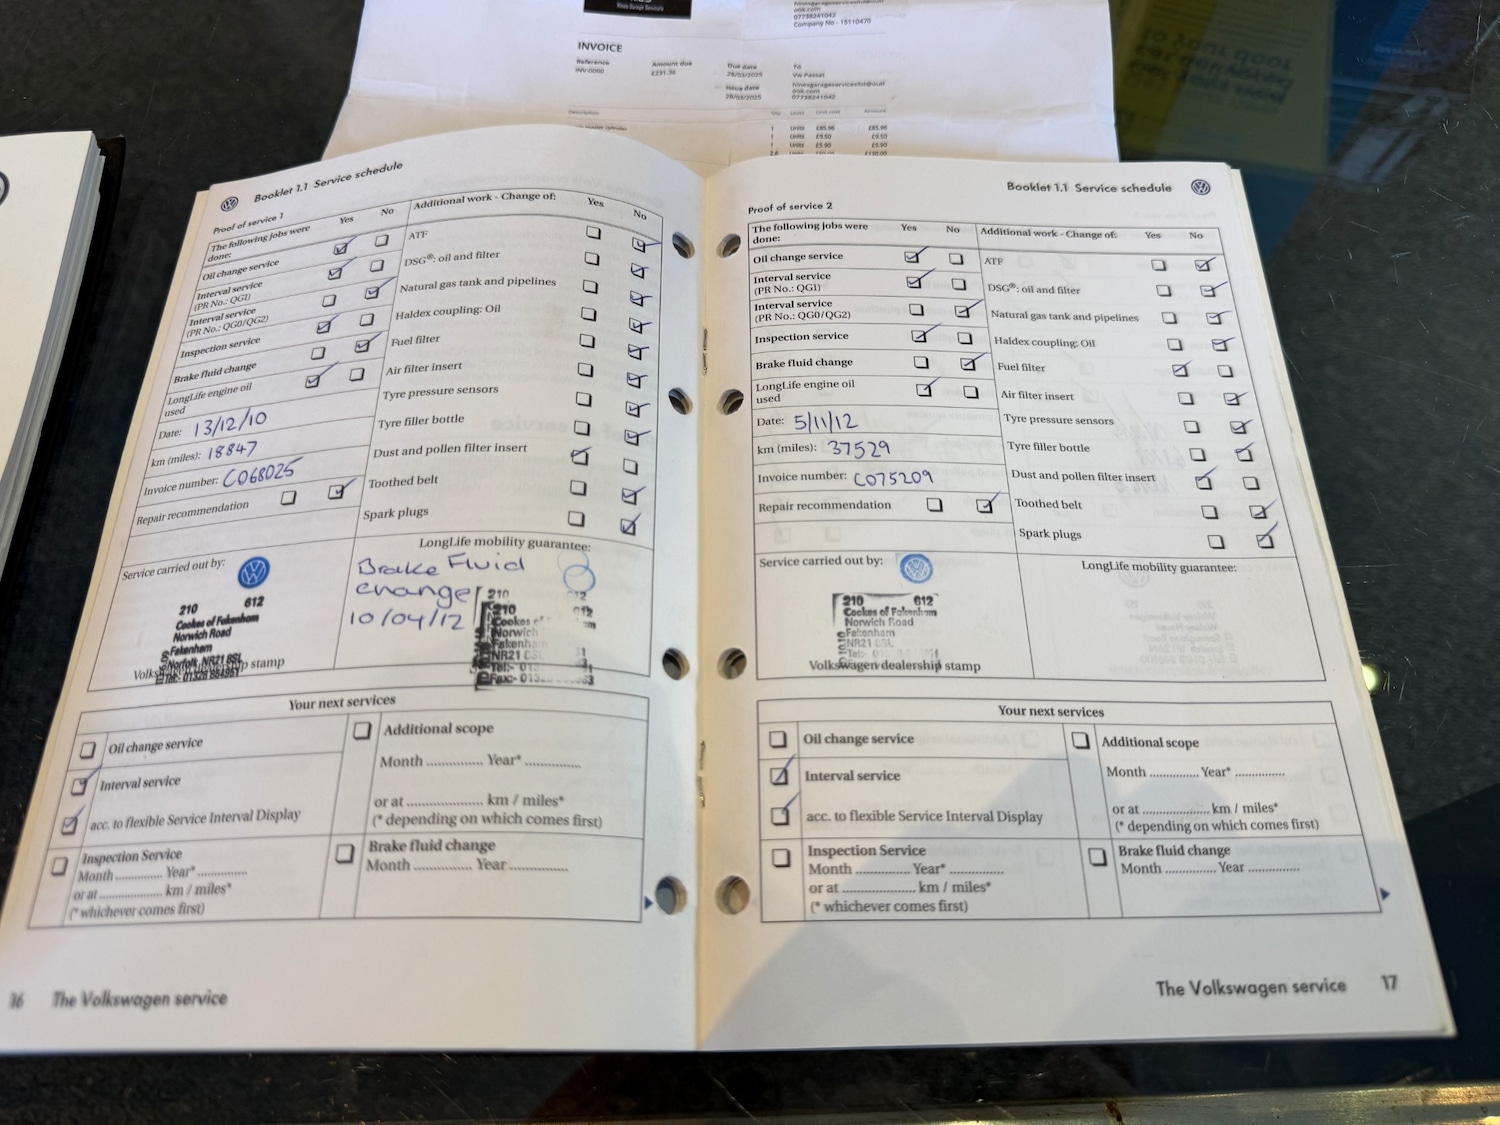 INVOICE
Reference
INV-0060
Amount due
£231.36
Due date
28/03/2025
Issue date
28/03/2025
To
VW Passat
hinesgarageservicesltd@outl
ook.com
07738241042
ook.com
07738241042
Company No - 15110470
Description
Qty Units Unit cost Amount
1 Units £85.96 £85.96
1 Units £9.50 £9.50
1 Units £5.90 £5.90
Booklet 1.1 Service schedule
Proof of service 1
The following jobs were
done:
Yes No
Oil change service
Interval service
(PR No.: QG1)
Interval service
(PR No.: QG0/QG2)
Inspection service
Brake fluid change
LongLife engine oil
used
Date: 13/12/10
km (miles): 18847
Invoice number: C068025
Repair recommendation
Additional work - Change of: Yes No
ATF
DSG®: oil and filter
Natural gas tank and pipelines
Haldex coupling: Oil
Fuel filter
Air filter insert
Tyre pressure sensors
Tyre filler bottle
Dust and pollen filter insert
Toothed belt
Spark plugs
Service carried out by:
210 612
Cookes of Fakenham
Norwich Road
Fakenham
Norfolk NR21 8SL
Tel:- 01328 864951
Volkswagen dealership stamp
LongLife mobility guarantee:
Brake Fluid
change
10/04/12
210
Cookes of
Norwich
Fakenham
NR21
Tel:-
Fax:-
Your next services
Oil change service
Interval service
acc. to flexible Service Interval Display
Inspection Service
Month .............. Year* ...............
or at .................... km / miles*
(* whichever comes first)
Additional scope
Month .............. Year* ...............
or at .................... km / miles*
(* depending on which comes first)
Brake fluid change
Month .............. Year ...............
16 The Volkswagen service
Booklet 1.1 Service schedule
Proof of service 2
The following jobs were
done:
Yes No
Oil change service
Interval service
(PR No.: QG1)
Interval service
(PR No.: QG0/QG2)
Inspection service
Brake fluid change
LongLife engine oil
used
Date: 5/11/12
km (miles): 37529
Invoice number: C075209
Repair recommendation
Additional work - Change of: Yes No
ATF
DSG®: oil and filter
Natural gas tank and pipelines
Haldex coupling: Oil
Fuel filter
Air filter insert
Tyre pressure sensors
Tyre filler bottle
Dust and pollen filter insert
Toothed belt
Spark plugs
Service carried out by:
210 612
Cookes of Fakenham
Norwich Road
Fakenham
NR21 8SL
Tel:-
Volkswagen dealership stamp
LongLife mobility guarantee:
Your next services
Oil change service
Interval service
acc. to flexible Service Interval Display
Inspection Service
Month .............. Year* ...............
or at .................... km / miles*
(* whichever comes first)
Additional scope
Month .............. Year* ...............
or at .................... km / miles*
(* depending on which comes first)
Brake fluid change
Month .............. Year ...............
The Volkswagen service 17